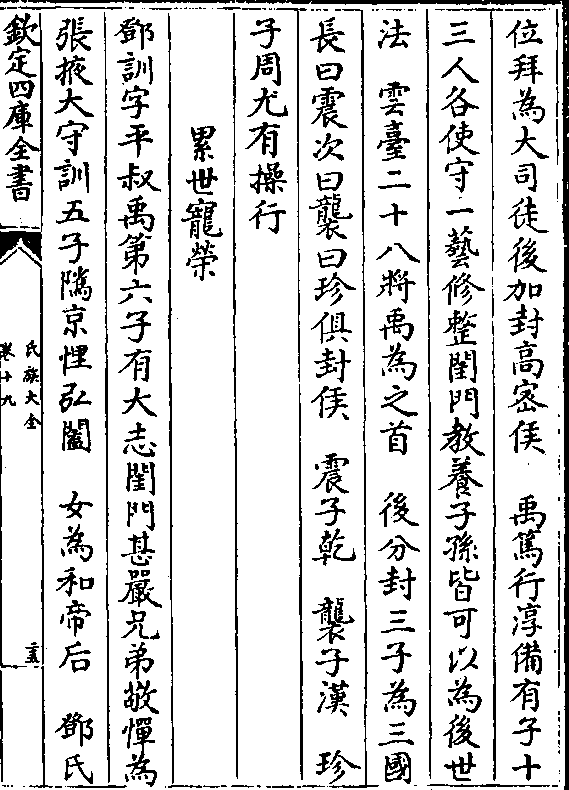 位拜為大司徒後加封高密侯　禹篤行淳備有子十
三人各使守一藝修整閨門教養子孫皆可以為後世
法　雲臺二十八將禹為之首　後分封三子為三國
長曰震次曰襲曰珍俱封侯　震子乾　襲子漢　珍
子周尤有操行
累世寵榮
鄧訓字平叔禹第六子有大志閨門甚嚴兄弟敬憚為
張掖大守訓五子隲京悝弘閶　女為和帝后　鄧氏
欽定四庫全書
氏族大全
卷十九